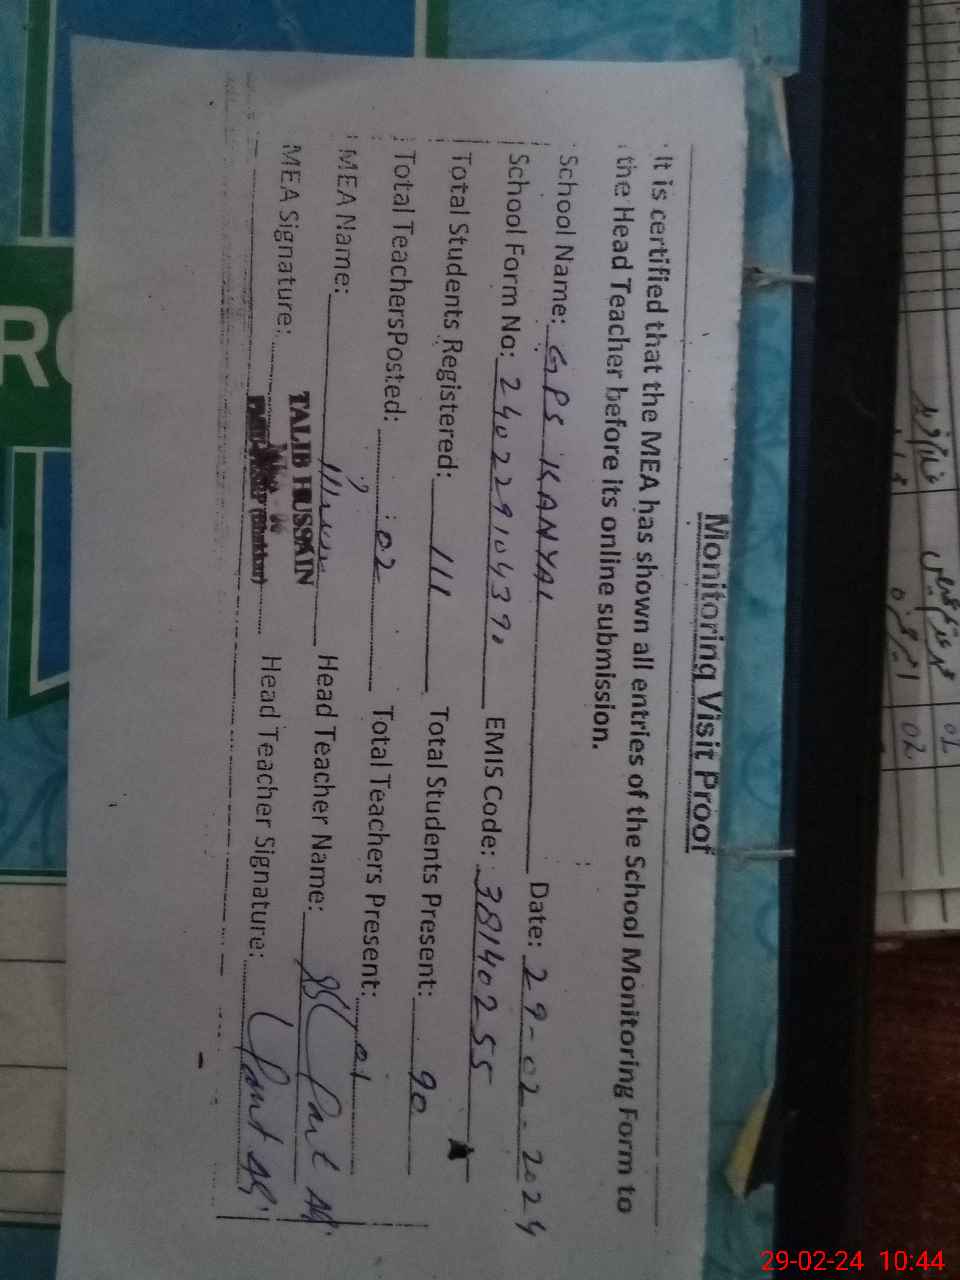 Monitoring Visit Proof
It is certified that the MEA has shown all entries of the School Monitoring Form to
the Head Teacher before its online submission.
School Name: GPS KANYAL Date: 29-02-2024
School Form No: 24022910439 EMIS Code: 38140255
Total Students Registered: 111 Total Students Present: 90
Total TeachersPosted: 02 Total Teachers Present: 01
MEA Name: Head Teacher Name:
TALIB HUSSAIN
MEA Signature: Head Teacher Signature:
29-02-24 10:44